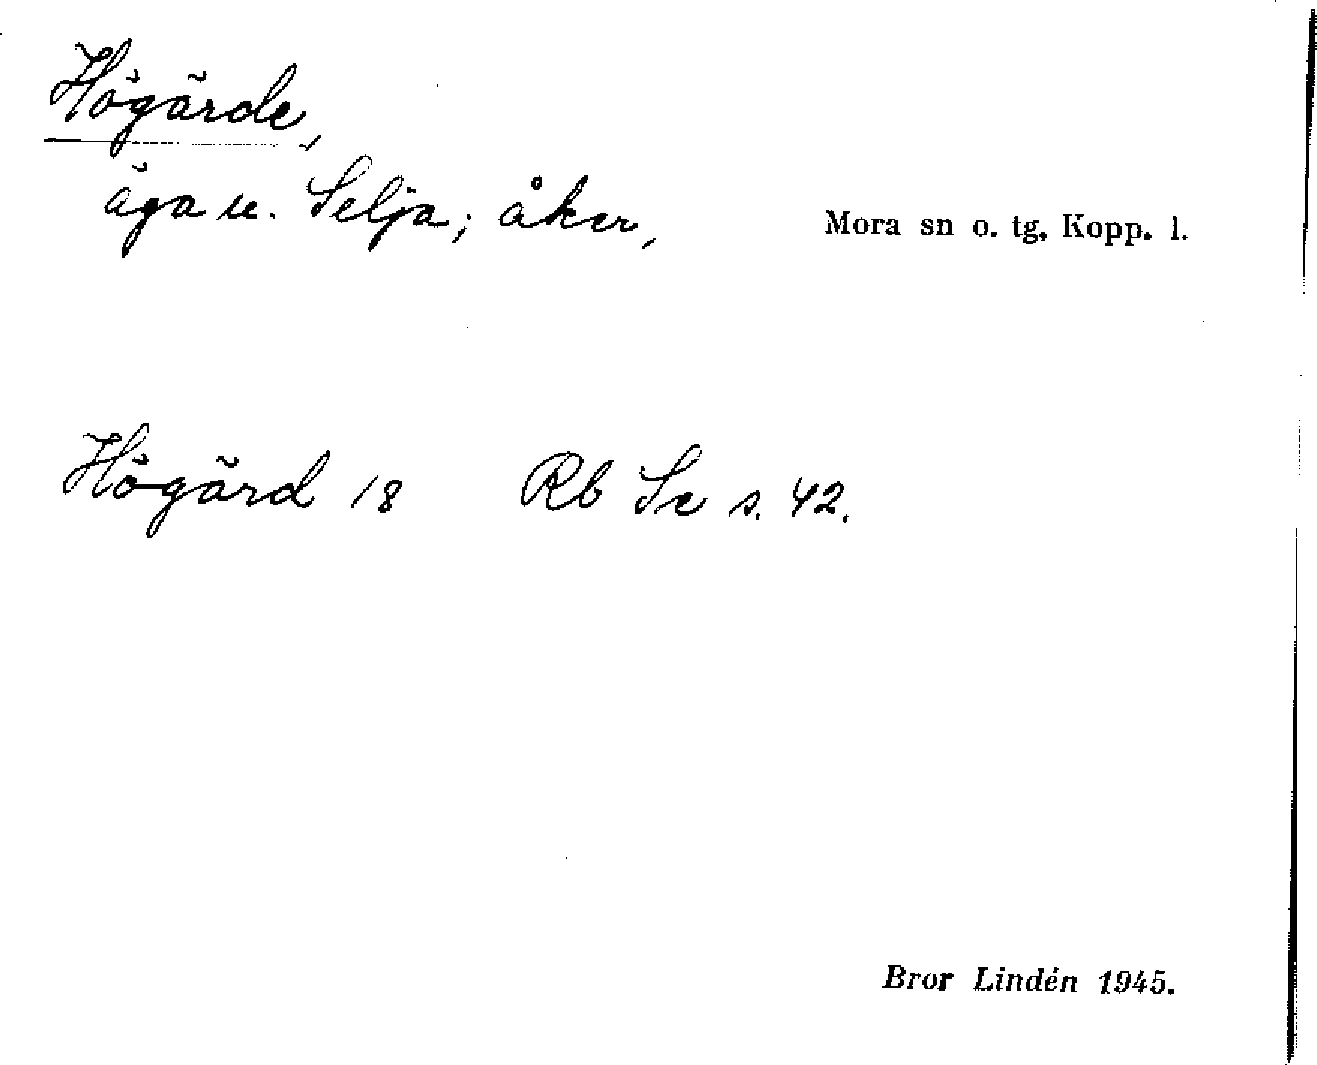 Högärde,
äga u. Selja; åker,
Mora sn o. tg, Kopp. l.
Högärd 18 Rb Se s. 42.
Bror Lindén 1945.